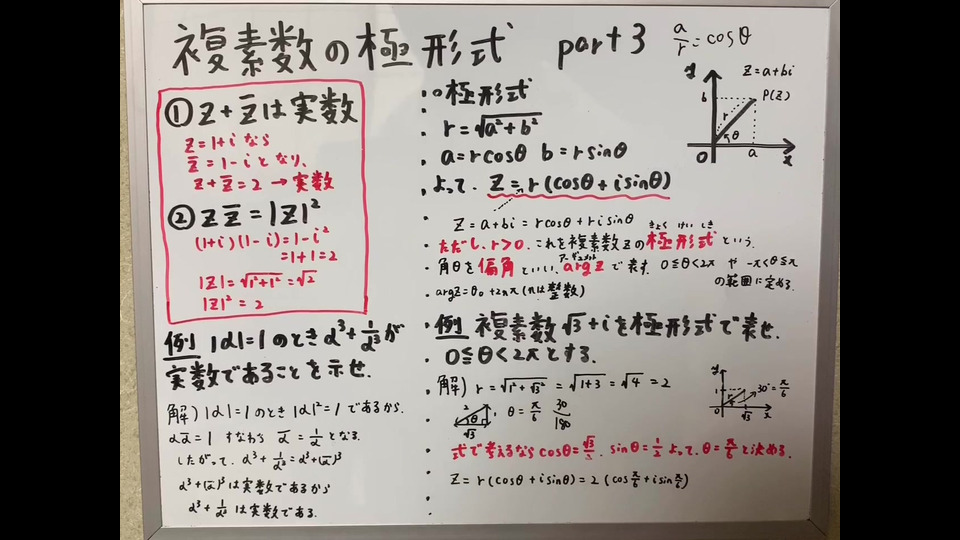 複素数の極形式 part 3
a/r = cosθ
① z + z̄ は実数
z = 1+i なら
z̄ = 1-i となり、
z + z̄ = 2 → 実数
② z z̄ = |z|²
(1+i)(1-i) = 1-i²
= 1+1 = 2
|z| = √1²+1² = √2
|z|² = 2
例 |α|=1 のとき α³ + 1/α³ が
実数であることを示せ.
解) |α|=1 のとき |α|²=1 であるから.
αᾱ = 1 すなわち ᾱ = 1/α となる.
したがって. α³ + 1/α³ = α³+(ᾱ)³
α³+(ᾱ)³ は実数であるから
α³ + 1/α³ は実数である.
○極形式
r = √a²+b²
a = r cosθ b = r sinθ
よって. z = r(cosθ + i sinθ)
z = a+bi = r cosθ + r i sinθ
きょく けい しき
ただし、r>0. これを複素数zの極形式という.
アーギュメント
角θを偏角といい、arg z で表す. 0≦θ<2π や -π<θ≦π
の範囲に定める.
arg z = θ₀ + 2nπ (nは整数)
y
z = a+bi
b
P(z)
r
θ
O
a
x
例 複素数 √3 + i を極形式で表せ.
0≦θ<2π とする.
解) r = √1²+√3² = √1+3 = √4 = 2
2
θ
1
√3
θ = π/6
30/180
y
1
30° = π/6
O
√3
x
式で考えるなら cosθ = √3/2. sinθ = 1/2 よって. θ = π/6 と決める.
z = r(cosθ + i sinθ) = 2(cos π/6 + i sin π/6)